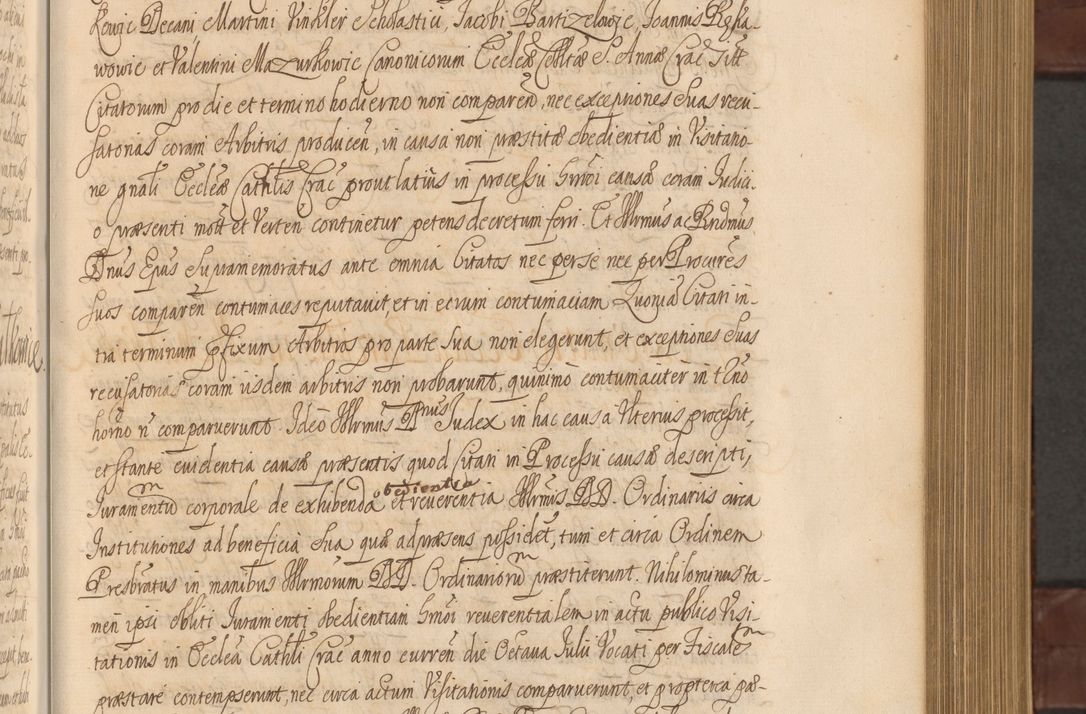 kowic Decani Martini Vinkler Scholastici, Jacobi Bartizelowic, Joannis Reka-
wowic et Valentini Mazurkowic Canonicorum Eccłae Colltae S. Annae Crac Sitt
Citatorum pro die et termino hodierno non comparen̄, nec exceptiones suas recu-
satorias coram Arbitris producen̄, in causa non praestitae obedientiae in Visitatio-
ne gnāli Eccleae Cathlis Crac prout latius in processu Smōi causae coram Judici-
o praesenti mott et Verten̄ continetur petens decretum ferri. Et Illrmus ac Rndmus
Dnus Epūs Supramemoratus ante omnia Citatos nec per se nec per Procurēs
suos comparen̄ contumaces reputavit, et in eorum contumaciam Quonia Citati in-
tra terminum pfixum Arbitros pro parte sua non elegerunt, et exceptiones suas
recusatorias coram iisdem arbitris non probarunt, quinimo contumaciter in tēno
horno n̄ comparuerunt. Ideo Illrmus Dnus Judex in hac causa Ulterius processit,
et stante evidentia causae praesentis quod Citati in Processu causae descripti,
Juramentum corporale de exhibenda obedientia et reverentia Illrmis DD. Ordinariis circa
Institutiones ad beneficia sua quae ad praesens possident, tum et circa Ordinem
Presbratus in manibus Illrmorum DD. Ordinariorum praestiterunt. Nihilominus ta-
men ipsi obliti Juramenti obedientiam Smōi reverentialem in actu publico Visi-
tationis in Ecclea Cathli Crac anno curren̄ die Octava Julii Vocati per Fiscalem
praestare contempserunt, nec circa actum Visitationis comparuerunt, et propterea pae-